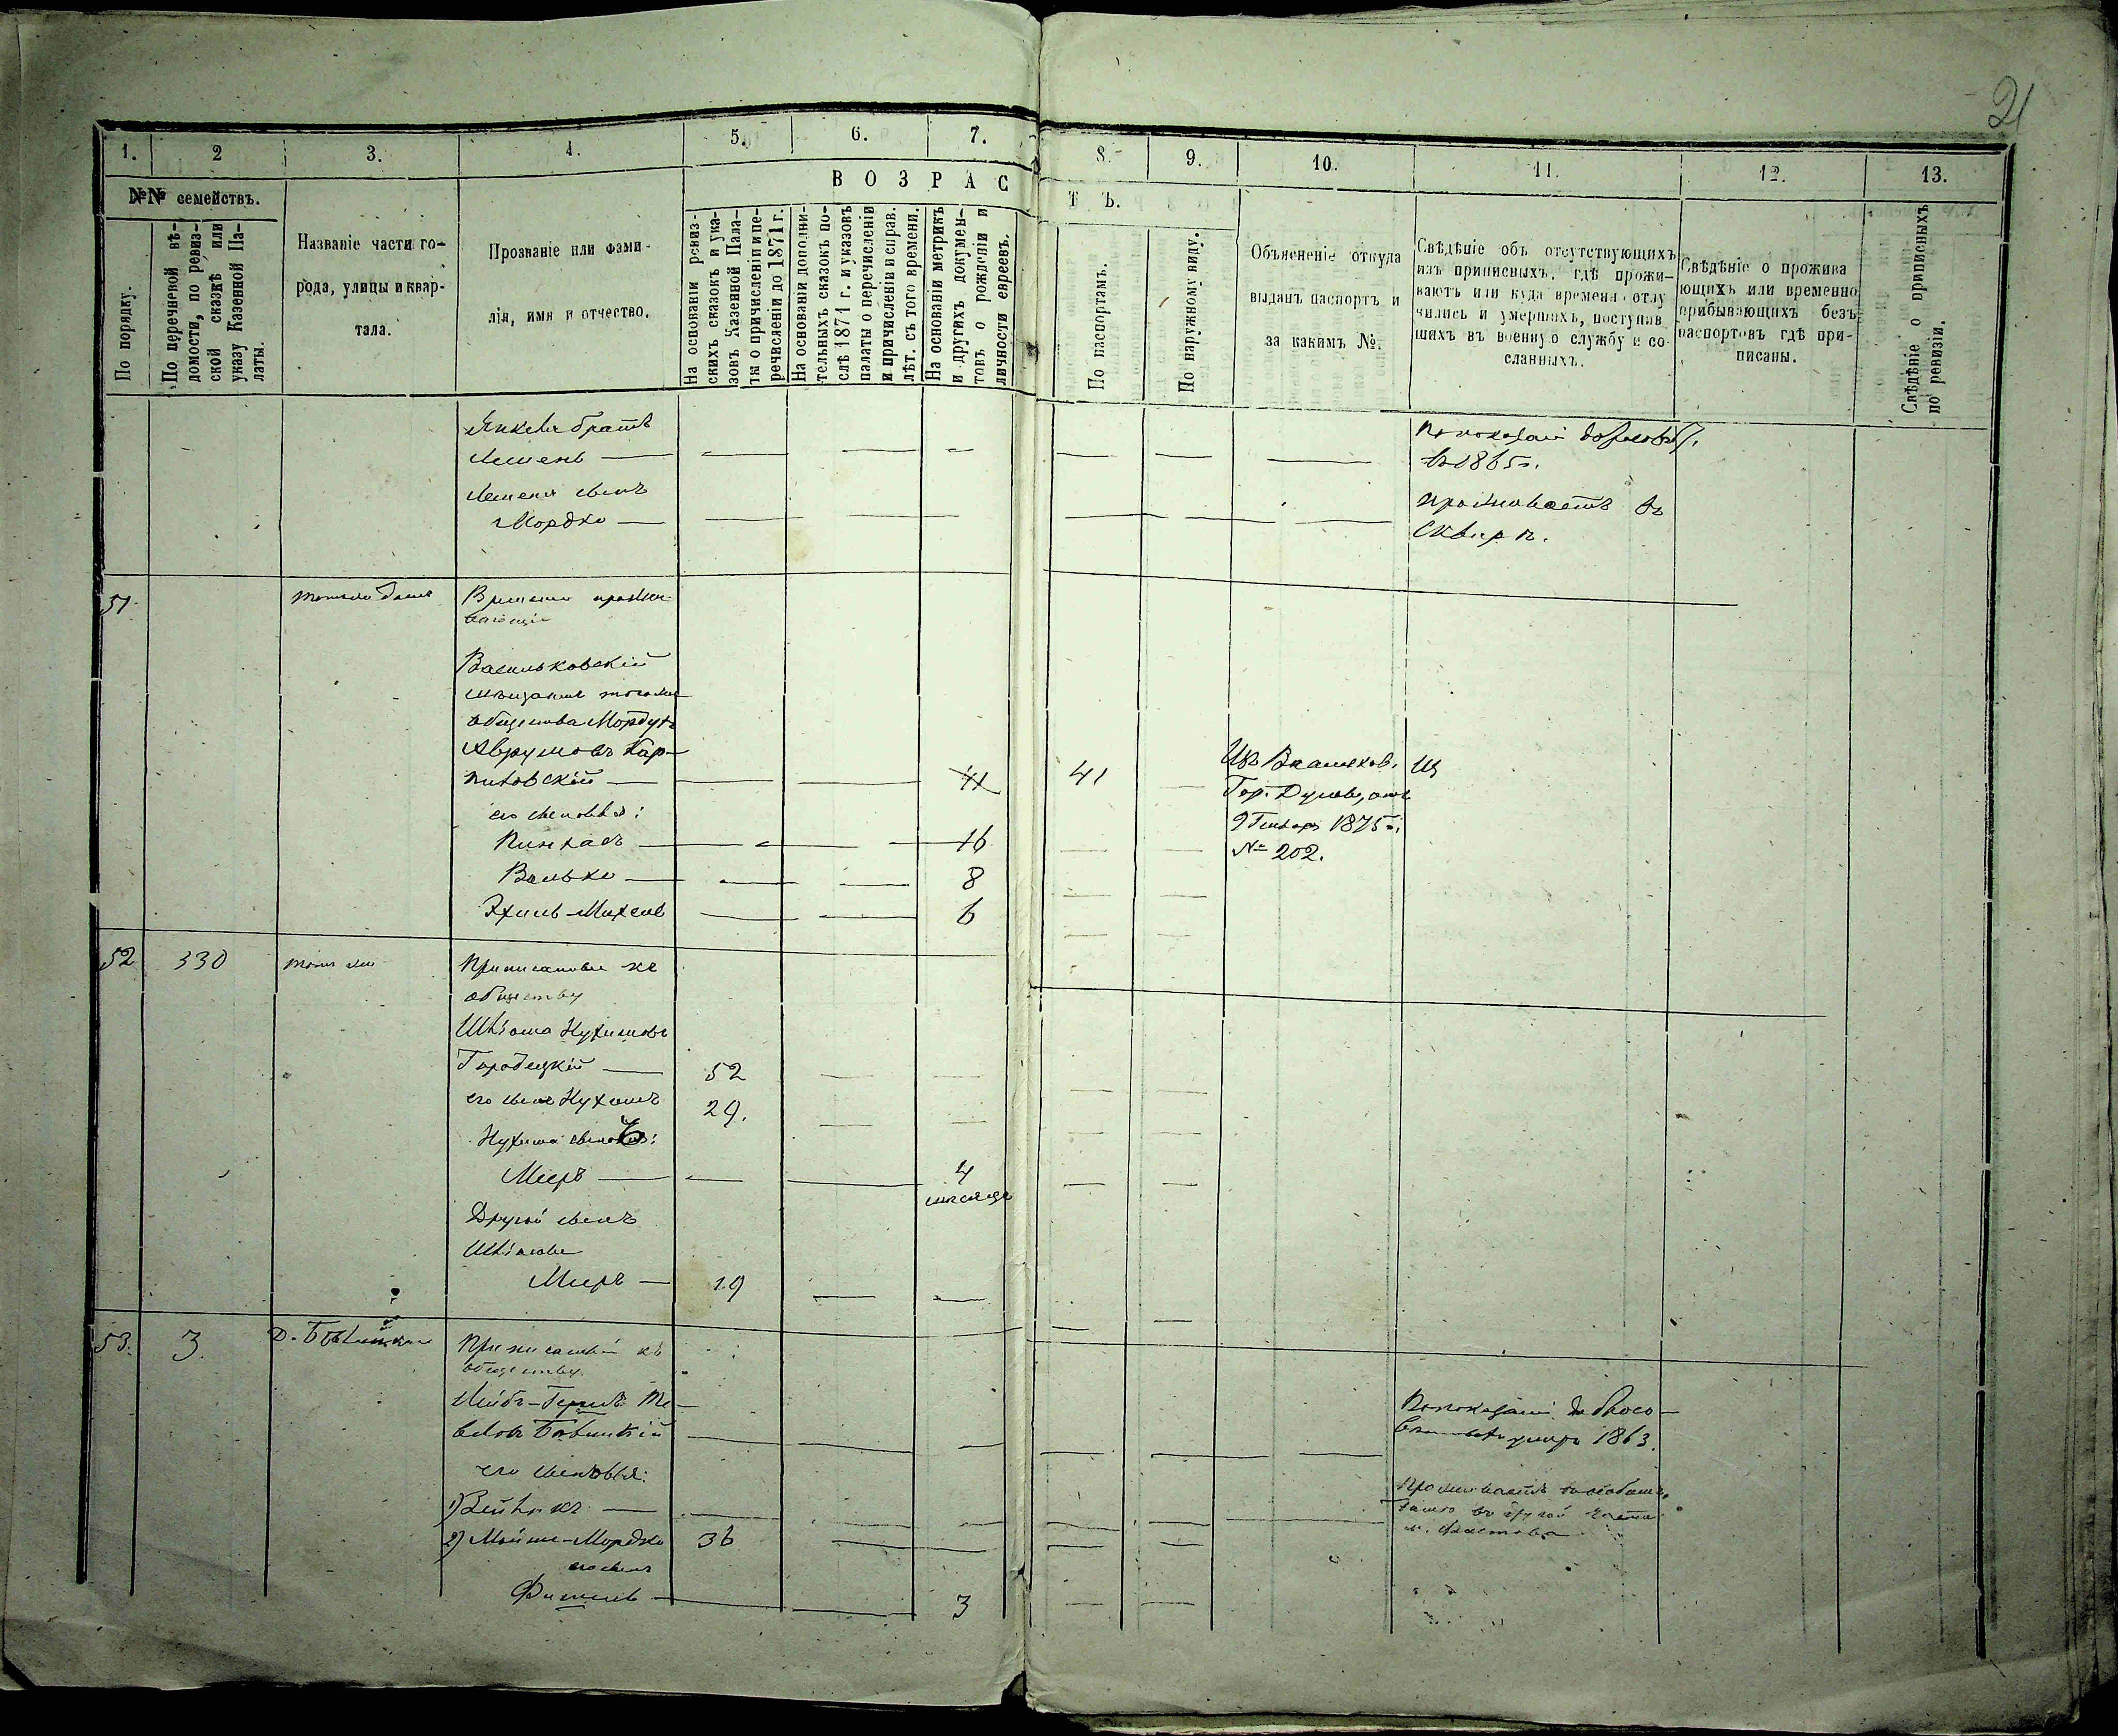 21
1.
2
3.
4.
5.
6.
7.
8.
9.
10.
11.
12.
13.
№№ семействъ.
ВОЗРАС
ТЪ.
По порядку.
По перечневой вѣ-
домости, по ревиз-
ской сказкѣ или
указу Казенной Па-
латы.
Названіе части го-
рода, улицы и квар-
тала.
Прозваніе или фами-
лія, имя и отчество.
На основаніи ревиз-
скихъ сказокъ и ука-
зовъ Казенной Пала-
ты о причисленіи и пе-
речисленіи до 1871 г.
На основаніи дополни-
тельныхъ сказокъ по-
слѣ 1871 г. и указовъ
палаты о перечисленіи
и причисленіи и справ.
лѣт. съ того времени.
На основаніи метрикъ
и другихъ докумен-
товъ о рожденіи и
личности евреевъ.
По паспортамъ.
По наружному виду.
Объясненіе откуда
выданъ паспортъ и
за какимъ №.
Свѣдѣніе объ отсутствующихъ
изъ приписныхъ, гдѣ прожи-
ваютъ или куда времени отлу
чились и умершихъ, поступив
шихъ въ военную службу и со
сланныхъ.
Свѣдѣніе о прожива
ющихъ или временно
прибывающихъ безъ
паспортовъ гдѣ при-
писаны.
Свѣдѣніе о приписныхъ
по ревизіи.
братъ
въ 1865 г.
сынъ
Мордко
проживаетъ въ
Сквирѣ.
51
Времени прожи-
вающіе
Васильковскій
мѣщанинъ того же
общества Мордухъ
Аврумовъ Кар-
пиловскій 41 41
Изъ Васильков.
Гор. Думы, отъ
9 Генваря 1875 г.
№ 202.
его сыновья:
Пинхасъ 16
Волько 8
Эхиль-Михель 6
52 330 тоже
Приписанные къ
обществу
Шліома Нухимовъ
Городецкій 52
его сынъ Нухимъ 29.
Нухима сынъ:
Мееръ 4
мѣсяца
Другой сынъ
Шліомы
Мееръ 19
53. 3.
Приписанный къ
обществу
1863.
его сыновья:
1)
2) Мойше-Мордко 36
его сынъ
Фишель 3
Проживаетъ
въ другой части
м. Фастова